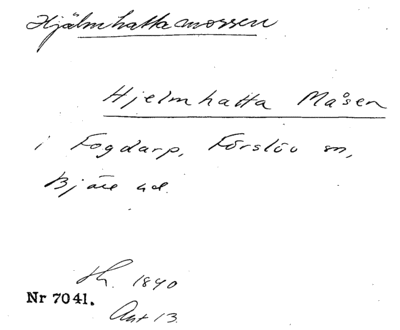 Hjälmhattamossen
Hjelmhatta Måsen
i Fogdarp, Förslöv sn,
Bjäre hd.
1840
Nr 7041.
Akt 13.